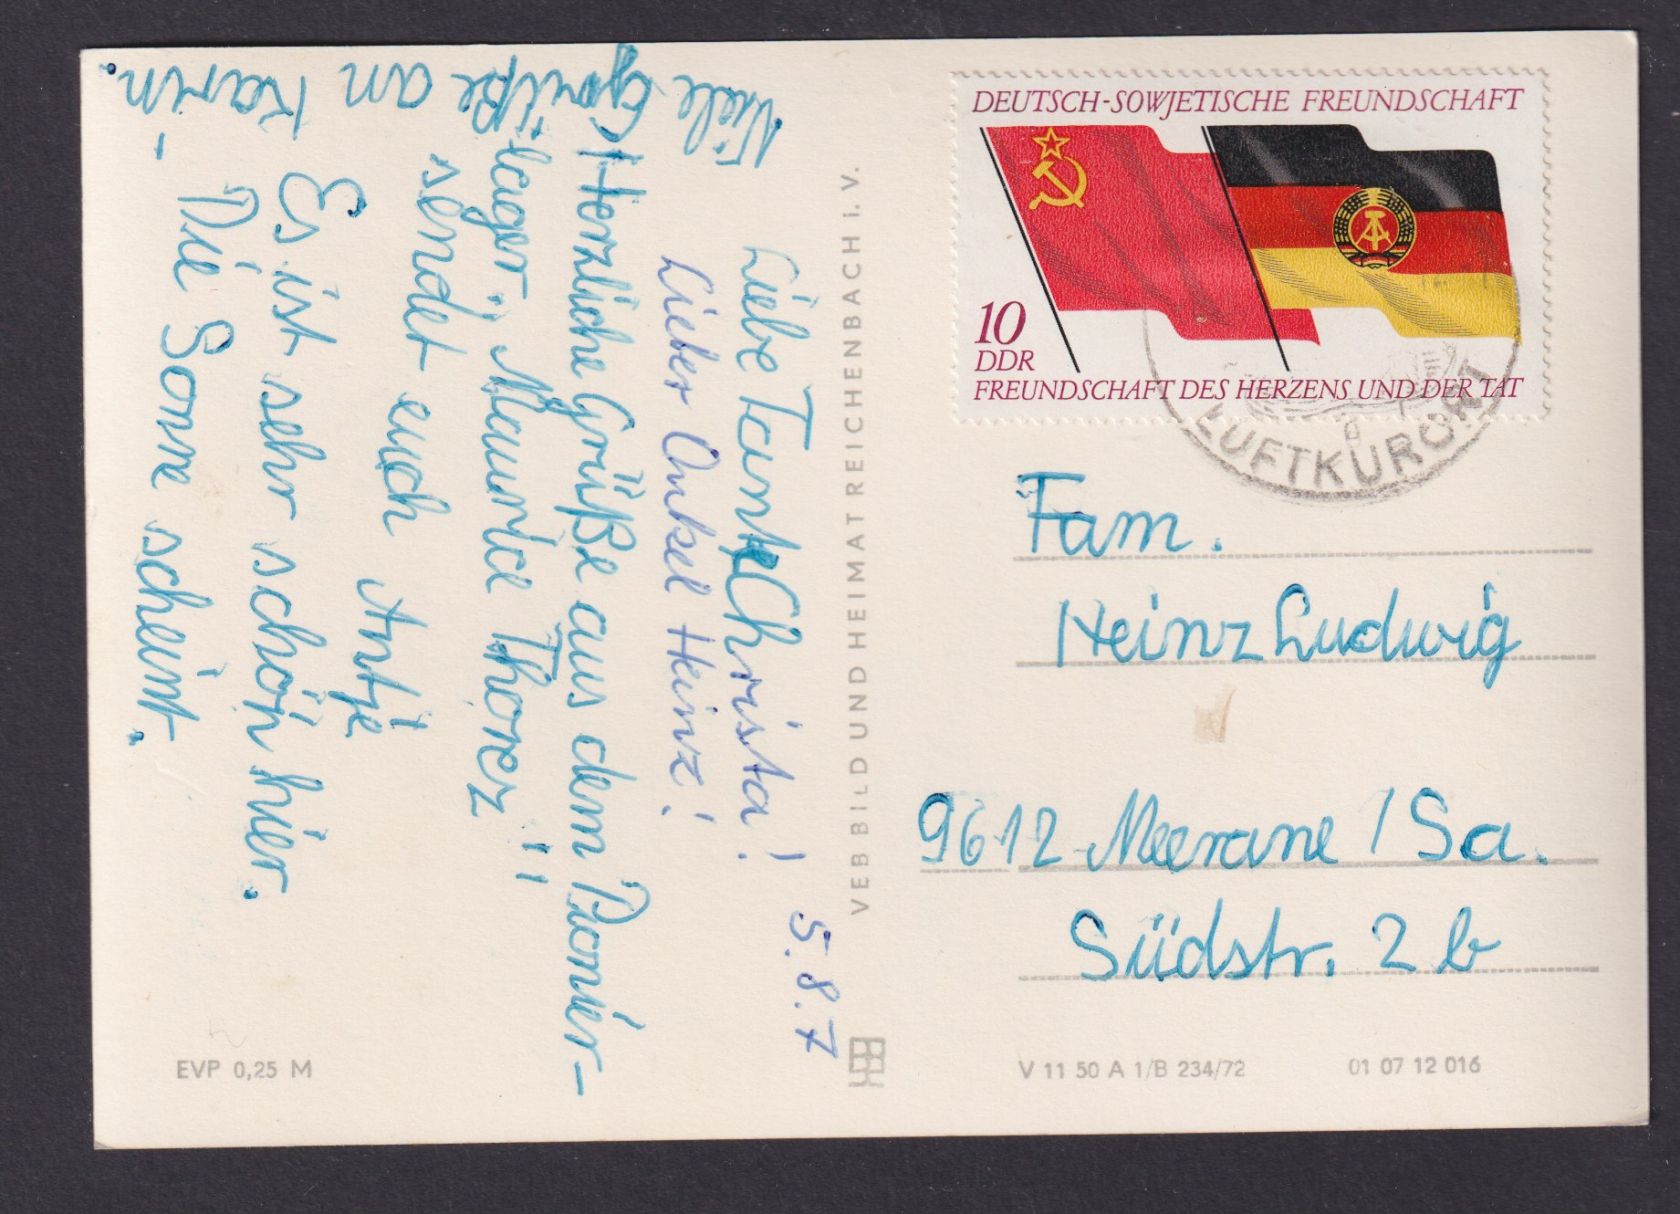 5.8.7
Liebe Tante Christa!
Lieber Onkel Heinz!
Herzliche Grüße aus dem Pionier-
lager „Maurice Thorez"
sendet euch
Antje
Es ist sehr schön hier.
Die Sonne scheint.
Viele
Grüße
an
Karin.
VEB BILD UND HEIMAT REICHENBACH i. V.
EVP 0,25 M
DEUTSCH-SOWJETISCHE FREUNDSCHAFT
10
DDR
FREUNDSCHAFT DES HERZENS UND DER TAT
LUFTKURORT
Fam.
Heinz Ludwig
9612 Meerane / Sa.
Südstr. 2 b
V 11 50 A 1/B 234/72 01 07 12 016